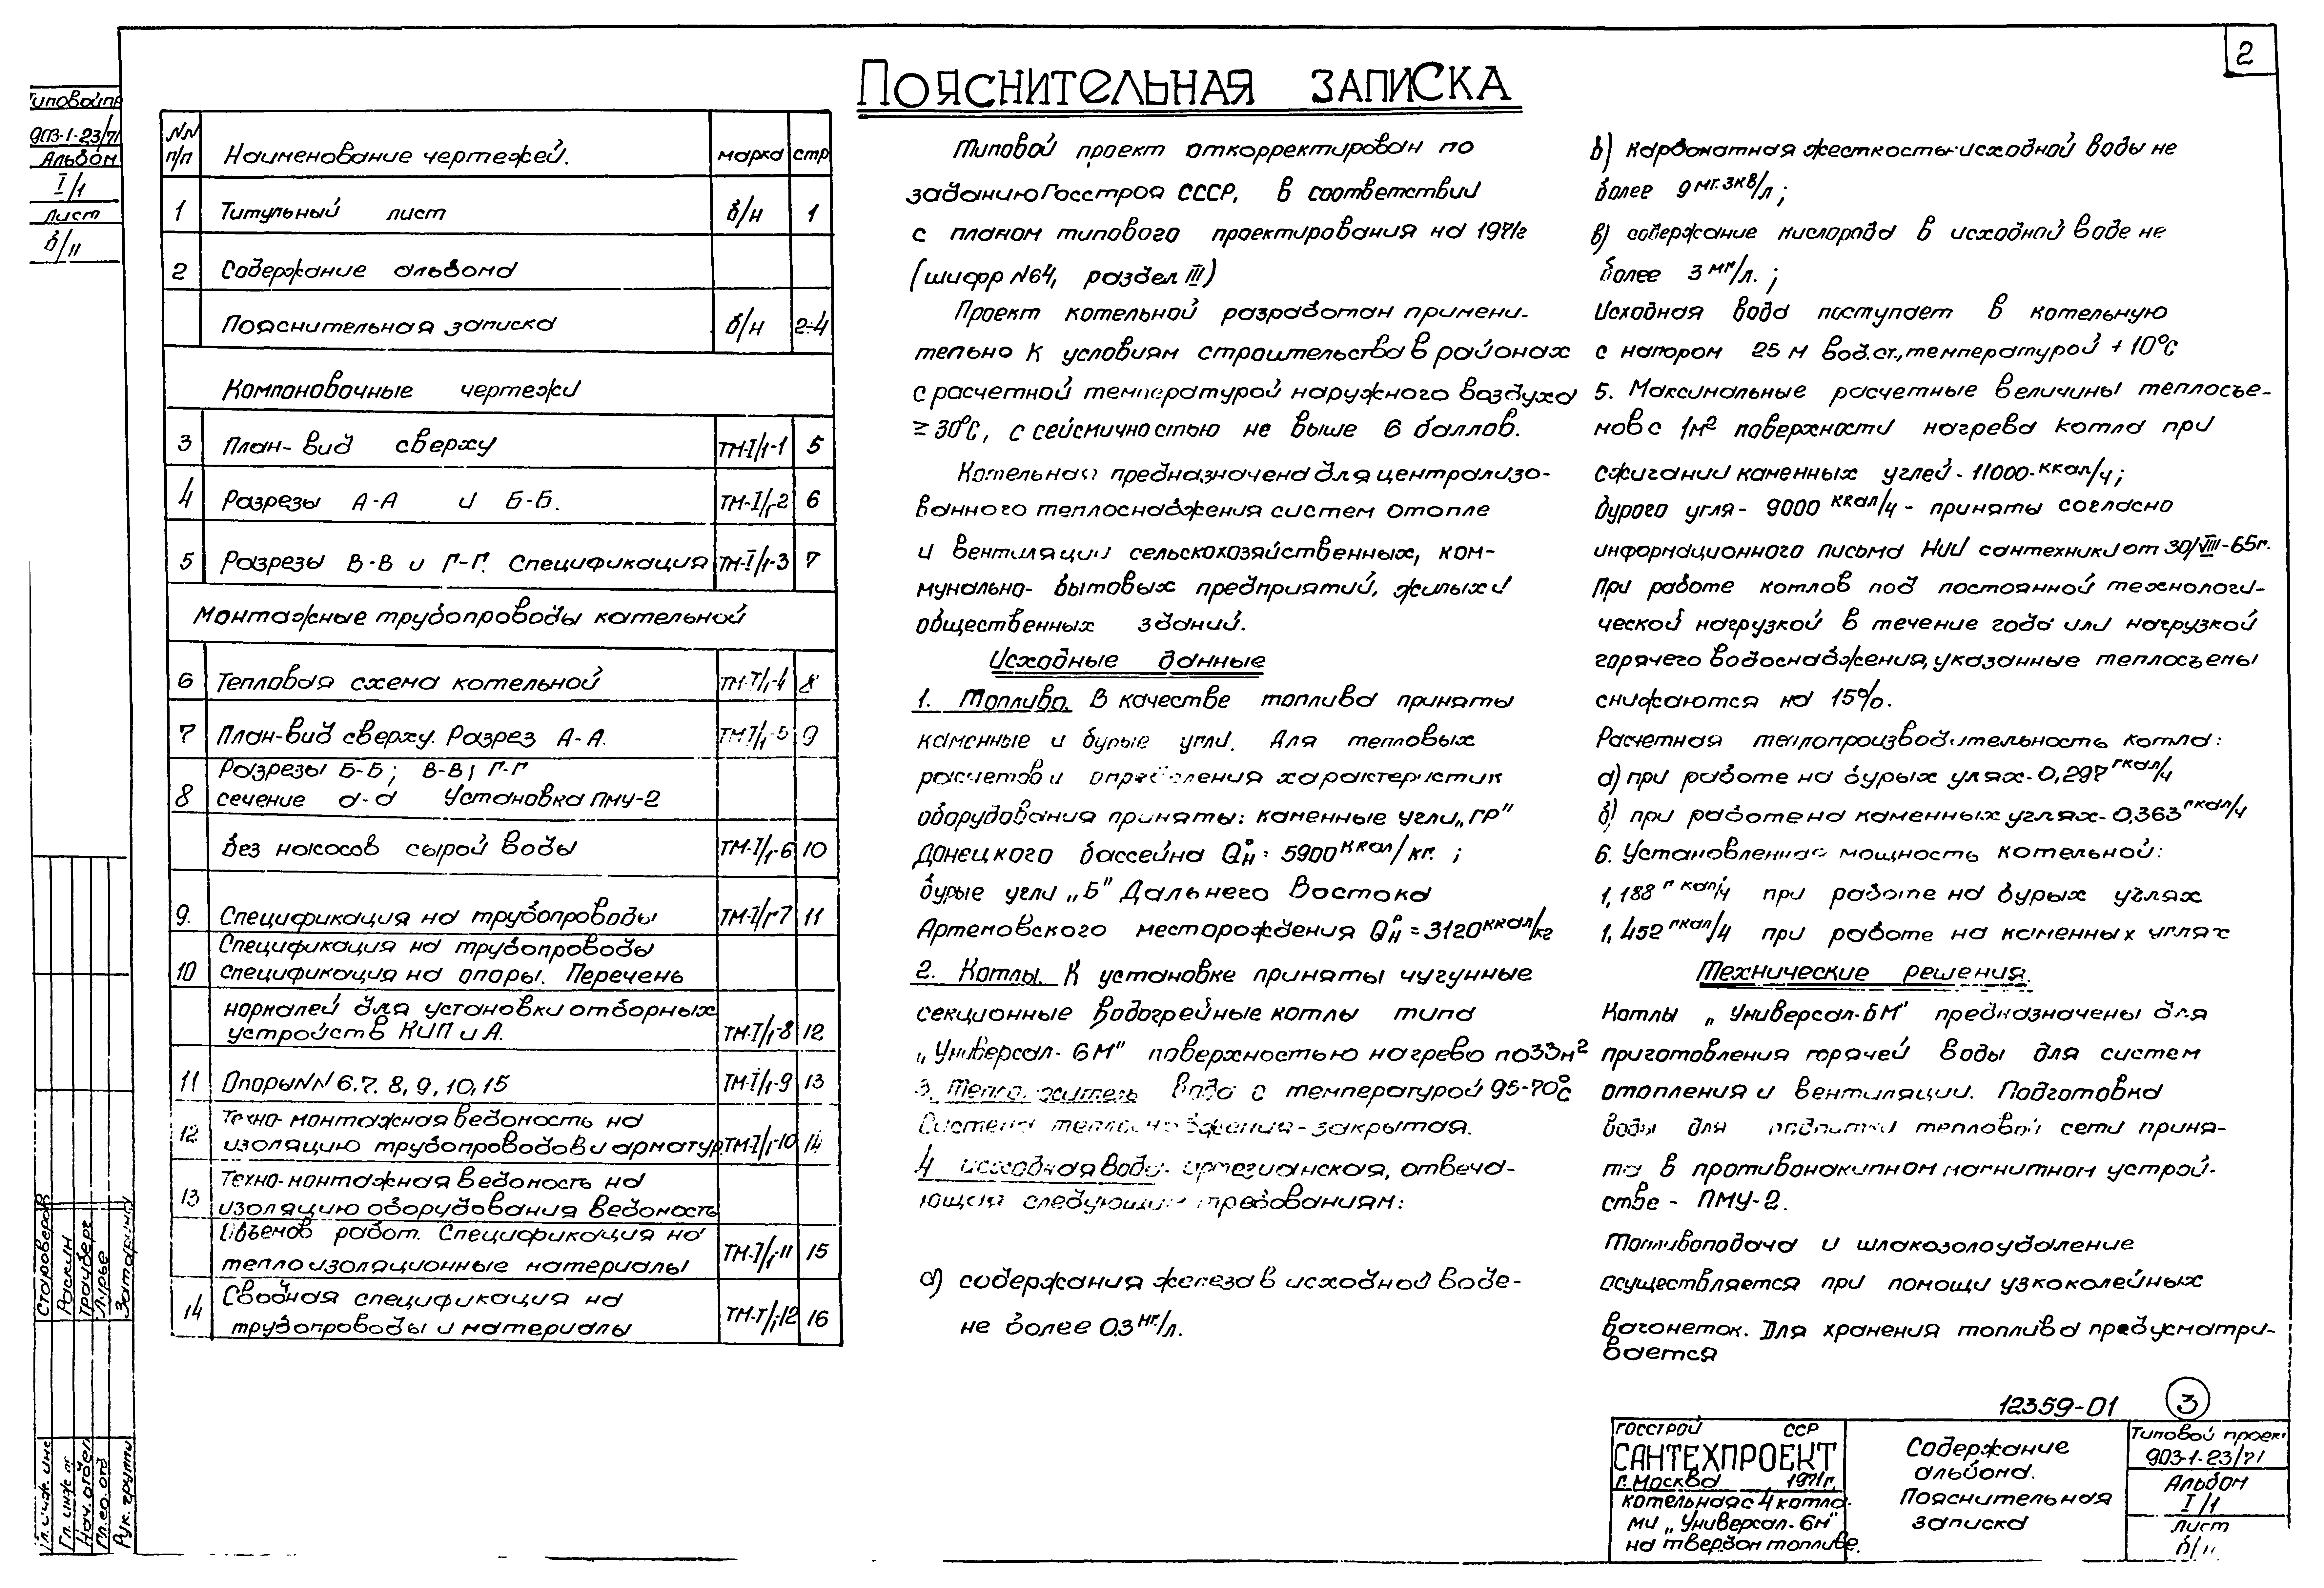 2
Пояснительная записка
Типовой пр
903-1-23/71
Альбом
I/1
Лист
б/н
NN п/п Наименование чертежей. марка стр
1 Титульный лист б/н 1
2 Содержание альбома
Пояснительная записка б/н 2-4
Компоновочные чертежи
3 План-вид сверху ТМ-I/1-1 5
4 Разрезы А-А и Б-Б. ТМ-I/1-2 6
5 Разрезы В-В и Г-Г. Спецификация ТМ-I/1-3 7
Монтажные трубопроводы кательной
6 Тепловая схема котельной ТМ-I/1-4 8
7 План-вид сверху. Разрез А-А. ТМ-I/1-5 9
Разрезы Б-Б; В-В; Г-Г
8 сечение а-а Установка ПМУ-2
без насосов сырой воды ТМ-I/1-6 10
9. Спецификация на трубопроводы ТМ-I/1-7 11
Спецификация на трубопроводы
10 спецификация на опоры. Перечень
нормалей для установки отборных
устройств КИП и А. ТМ-I/1-8 12
11 Опоры NN 6.7. 8, 9, 10, 15 ТМ-I/1-9 13
Техно-монтажная ведомость на
12 изоляцию трубопроводов и арматур ТМ-I/1-10 14
Техно-монтажная ведомость на
13 изоляцию оборудования ведомость
Объемов работ. Спецификация на
теплоизоляционные материалы ТМ-I/1-11 15
14 Сводная спецификация на
трубопроводы и материалы ТМ-I/1-12 16
Типовой проект откорректирован по
заданию Госстроя СССР, в соответствии
с планом типового проектирования на 1971г
(шифр N64, раздел III)
Проект котельной разработан примени-
тельно к условиям строительства в районах
с расчетной температурой наружного воздуха
≥30°С, с сейсмичностью не выше 6 баллов.
Котельная предназначена для централизо-
ванного теплоснабжения систем отопле
и вентиляции сельскохозяйственных, ком-
мунально-бытовых предприятий, жилых и
общественных зданий.
Исходные данные
1. Топливо. В качестве топлива приняты
каменные и бурые угли. Для тепловых
расчетов и определения характеристик
оборудования приняты: каменные угли „ГР"
Донецкого бассейна Qрн = 5900 ккал/кг. ;
бурые угли „Б" Дальнего Востока
Артемовского месторождения Qрн = 3120 ккал/кг
2. Котлы. К установке приняты чугунные
секционные водогрейные котлы типа
„Универсал-6М" поверхностью нагрева по 33м²
3. Теплоноситель вода с температурой 95-70°С
Система теплоснабжения-закрытая.
4 исходная вода- артезианская, отвеча-
ющая следующим требованиям:
а) содержания железа в исходной воде-
не более 0.3 мг/л.
б) карбонатная жесткость исходной воды не
более 9 мг.экв/л ;
в) содержание кислорода в исходной воде не
более 3 мг/л. ;
Исходная вода поступает в котельную
с напором 25 м вод.ст., температурой +10°С
5. Максимальные расчетные величины теплосъе-
мов с 1м² поверхности нагрева котла при
сжигании каменных углей - 11000 - ккал/ч;
бурого угля - 9000 ккал/ч - приняты согласно
информационного письма НИИ сантехники от 30/VIII-65г.
При работе котлов под постоянной технологи-
ческой нагрузкой в течение года или нагрузкой
горячего водоснабжения, указанные теплосъемы
снижаются на 15%.
Расчетная теплопроизводительность котла:
а) при работе на бурых углях - 0,297 гкал/ч
б) при работе на каменных углях - 0,363 гкал/ч
6. Установленная мощность котельной:
1,188 гкал/ч при работе на бурых углях
1,452 гкал/ч при работе на каменных углях
Технические решения.
Котлы „Универсал-6М" предназначены для
приготовления горячей воды для систем
отопления и вентиляции. Подготовка
воды для подпитки тепловой сети приня-
та в противонакипном магнитном устрой-
стве - ПМУ-2.
Топливоподача и шлакозолоудаление
осуществляется при помощи узкоколейных
вагонеток. Для хранения топлива предусматри-
вается
12359-01 3
ГОССТРОЙ ССР
САНТЕХПРОЕКТ
г. Москва 1971г.
котельная с 4 котла-
ми „Универсал-6м"
на твердом топливе.
Содержание
альбома.
Пояснительная
записка
Типовой проект
903-1-23/71
Альбом
I/1
Лист
б/н
Гл. инж. инс Староверов
Гл. инж. пр Раскин
Нач. отдел Трауберг
Гл. сп. отд Лурье
Рук. группы